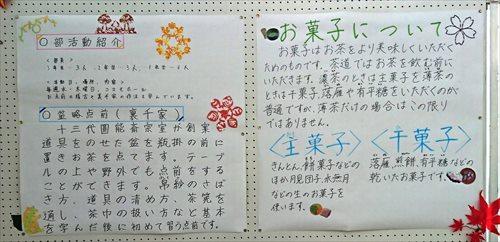 ○部活動紹介
・部員
1年生…3人、2年生…3人、
・活動日、場所、内容
毎週水・木曜日、
○盆略点前(裏千家)
十三代圓能斎宗室が創案
道具をのせた盆を瓶掛の前に
置きお茶を点てます。テーブ
ルの上や野外でも点前をする
ことができます。帛紗のさば
き方、道具の清め方、茶筅を
通し、茶巾の扱い方など基本
を学んだ後に初めて習う点前です。
お菓子について
お菓子はお茶をより美味しくいただく
ためのものです。茶道ではお茶を飲む前に
いただきます。濃茶のときは主菓子を薄茶の
ときは干菓子、落雁や有平糖をいただくのが
普通ですが、薄茶だけの場合はこの限り
ではありません。
〈主菓子〉
きんとん、餅菓子などの
ほか月見団子、水無月
などの生のお菓子を
使います。
〈干菓子〉
落雁、煎餅、有平糖などの
乾いたお菓子です。